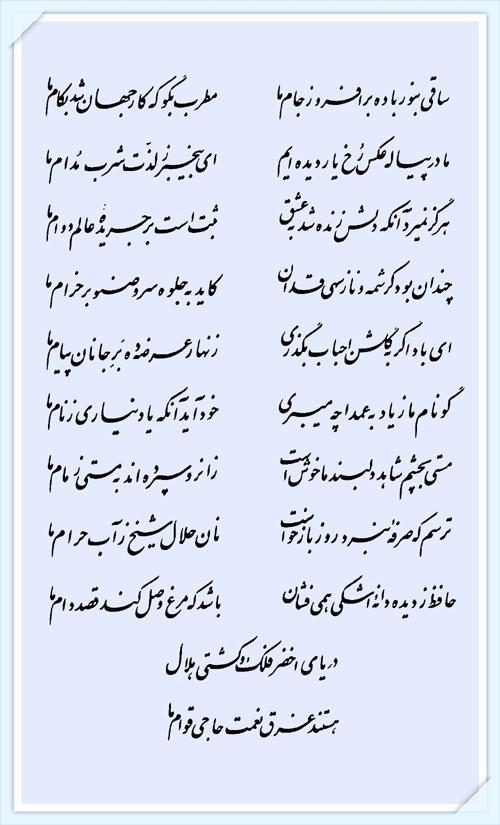 ساقی بنور باده برافروز جام ما مطرب بگو که کار جهان شد بکام ما
ما در پیاله عکس رخ یار دیده ایم ای بیخبر ز لذت شرب مدام ما
هرگز نمیرد آنکه دلش زنده شد به عشق ثبت است بر جریدهٔ عالم دوام ما
چندان بود کرشمه و ناز سهی قدان کاید به جلوه سرو صنوبر خرام ما
ای باد اگر به گلشن احباب بگذری زنهار عرضه ده بر جانان پیام ما
گو نام ما ز یاد به عمدا چه میبری خود آید آنکه یاد نیاری ز نام ما
مستی بچشم شاهد دلبند ما خوش است زانرو سپرده اند به مستی زمام ما
ترسم که صرفهٔ نبرد روز بازخواست نان حلال شیخ ز آب حرام ما
حافظ ز دیده دانهٔ اشکی همی فشان باشد که مرغ وصل کند قصد دام ما
دریای اخضر فلک و کشتی هلال
هستند غرق نعمت حاجی قوام ما